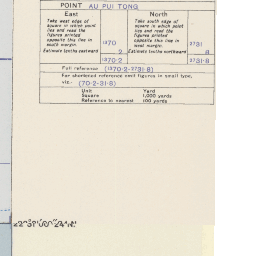 POINT AU PUI TONG
East North
Take west edge of square in which point lies and read the figures printed opposite this line in south margin. 1370
Take south edge of square in which point lies and read the figures printed opposite this line in west margin. 3731
Estimate tenths eastward 2
Estimate tenths northward 8
1370·2 3731·8
Full reference (1370·2-3731·8)
For shortened reference omit figures in small type,
viz. (70·2-31·8)
Unit Yard
Square 1,000 yards
Reference to nearest 100 yards